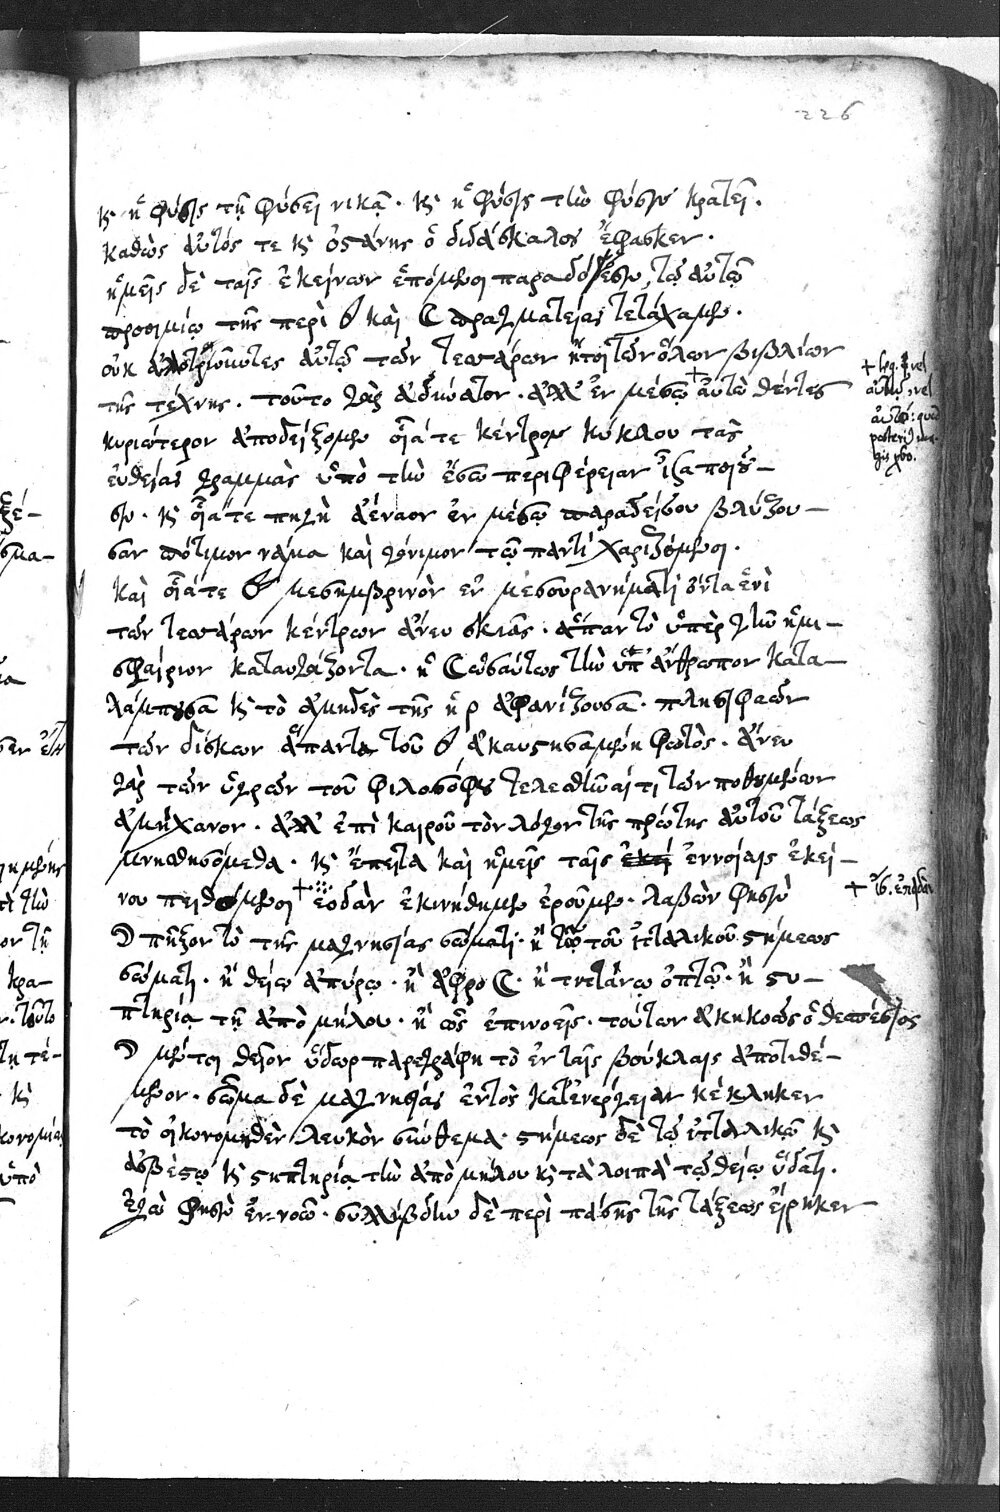 226
κ ἡ φύσις τῇ φύσει νικᾷ · κ ἡ φύσις τὴν φύσιν κρατεῖ ·
καθὼς αὐτός τε κ ὀστάνης ὁ διδάσκαλος ἔφασκεν ·
ἡμεῖς δὲ ταῖς ἐκείνων ἑπόμενοι παραδόσεσιν, τῷ αὐτῷ
προοιμίῳ τῆς περὶ ☌ καὶ ☾ πραγματείας τετάχαμεν ·
οὐκ αὐτῷ τῶν τεσσάρων ἤτοι τῶν ὅλων βιβλίων
τῆς τέχνης · τοῦτο γὰρ ἀδύνατον · ἀλλ' ἐν μέσῳ + αὐτῶ θέντες
κυριώτερον ἀποδείξομεν οἷά τε κέντρον κύκλου τὰς
εὐθείας γραμμὰς ὑπὸ τὴν ἔσω περιφέρειαν ποιοῦ–
σιν · κ οἷά τε πηγὴ ἀέναον ἐν μέσῳ παραδείσου βλύζου–
σαν πότιμον νάμα καὶ γόνιμον τῷ παντὶ χαριζόμενοι ·
καὶ οἷά τε ☌ μεσημβρινὸν ἐν μεσουρανήματι ὄντα ἐπὶ
τῶν τεσσάρων κέντρων ἄνευ σκιᾶς · ἅπαν τὸ ὑπὲρ γῆν ἡμι–
σφαίριον καταυγάζοντα · ἢ ☾ ὡσαύτως τὴν ὑπ' ἄνθρωπον κατα–
λάμπουσα κ τὸ ἀμηδὲς τῆς ἡ ρ ἀφανίζουσα · πλησιφαῶν
τῶν δίσκων ἅπαντα τοῦ ☌ ἀκαυστησαμένη φωτὸς · ἄνευ
γὰρ τῶν ὑγρῶν τοῦ φιλοσόφου τελεσθῆναί τι τῶν ποθουμένων
ἀμήχανον · ἀλλ' ἐπὶ καιροῦ τὸν λόγον τῆς πρώτης αὐτοῦ τάξεως
μνησθησόμεθα · κ ἔπειτα καὶ ἡμεῖς ταῖς ἐννοίαις ἐκεί–
νου πειθόμενοι + ἐοδὰν ἐκινήθημεν ἐροῦμεν · λαβὼν φησὶν
☽ πῆξον τὸ τῆς μαγνησίας σώματι · ἢ τῷ τοῦ ἰταλικοῦ στίμεως
σώματι · ἢ θείῳ ἀπύρῳ · ἢ ἀφρο ☾ · ἢ τιτάνῳ ὀπτῷ · ἢ στυ–
πτηρίᾳ τῇ ἀπὸ μήλου · ἢ ὡς ἐπινοεῖς · τούτων ἀκηκοὼς ὁ θεσπέσιος
☽ μέντοι θεῖον ὕδωρ παρεγράφη τὸ ἐν ταῖς βούκλαις ἀποτιθέ–
μενον · σῶμα δὲ μαγνησίας ἐντὸς κατ' ἐνέργειαν κέκληκεν
τὸ οἰκονομηθὲν λευκὸν σύνθεμα · στίμεως δὲ τῷ ἰταλικῷ κ
ἀσβέστῳ κ στηπτηρίᾳ τὴν ἀπὸ μήλου κ τὰ λοιπὰ τῷ θείῳ ὕδατι ·
ἐγὼ φησὶν ἐννοῶ · συλλήβδην δὲ περὶ πάσης τῆς τάξεως εἴρηκεν